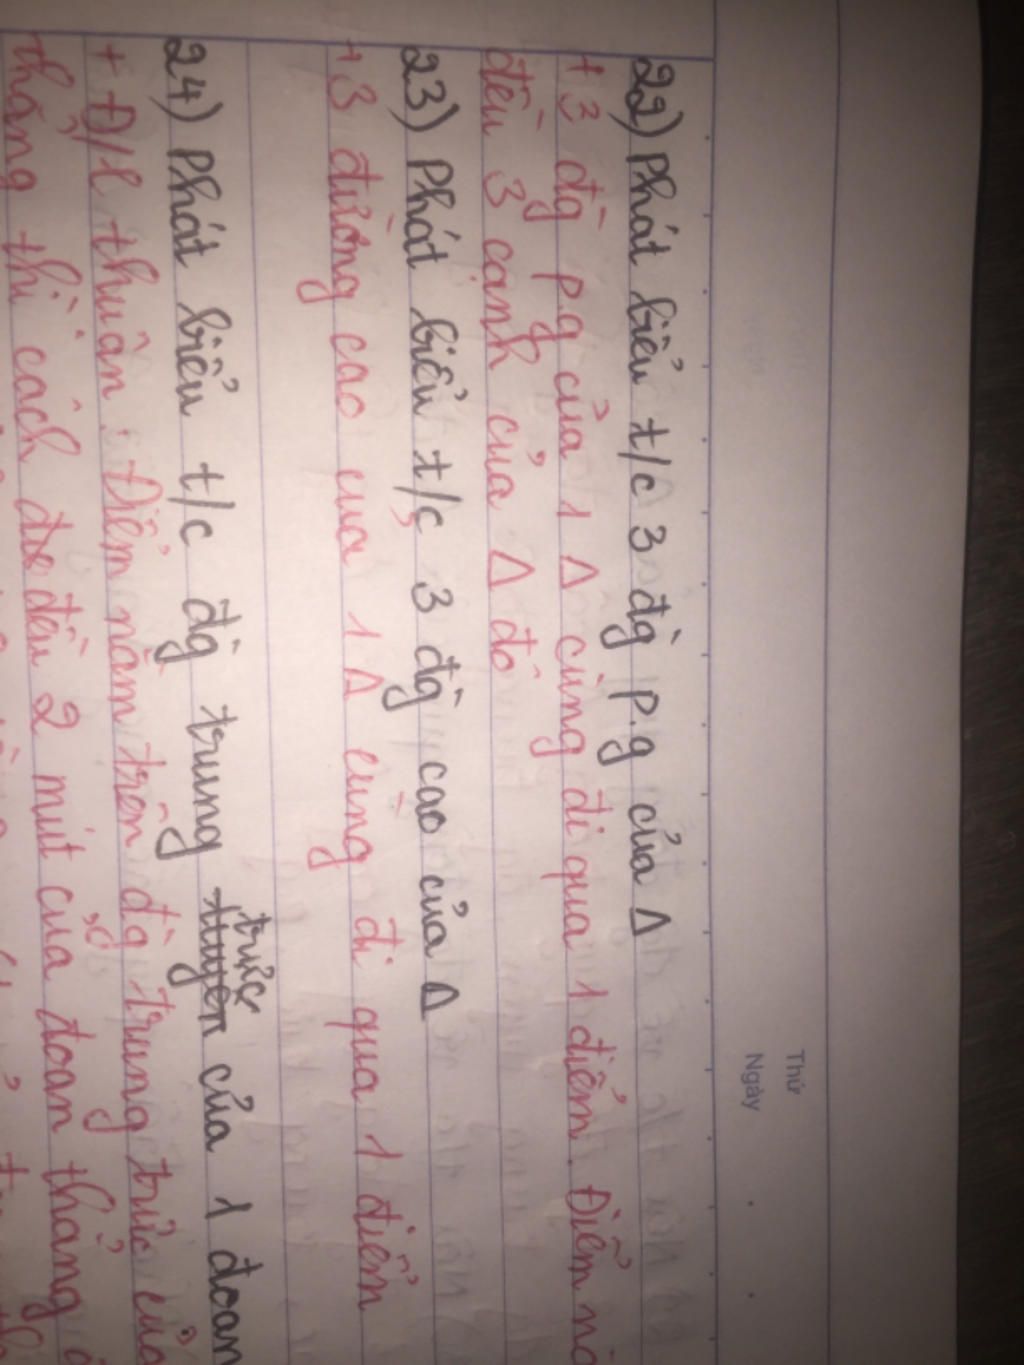 Thứ
Ngày
22) Phát biểu t/c 3 đg̀ p.g của Δ
+ 3 đg̀ p.g của 1 Δ cùng đi qua 1 điểm. Điểm
đều 3 cạnh của Δ đó
23) Phát biểu t/c 3 đg̀ cao của Δ
+ 3 đường cao của 1 Δ cùng đi qua 1 điểm
24) Phát biểu t/c đg̀ trung trực của 1 đoạn
+ Đ/l thuận: Điểm nằm trên đg̀ trung trực của
thẳng thì cách đều 2 mút của đoạn thẳng